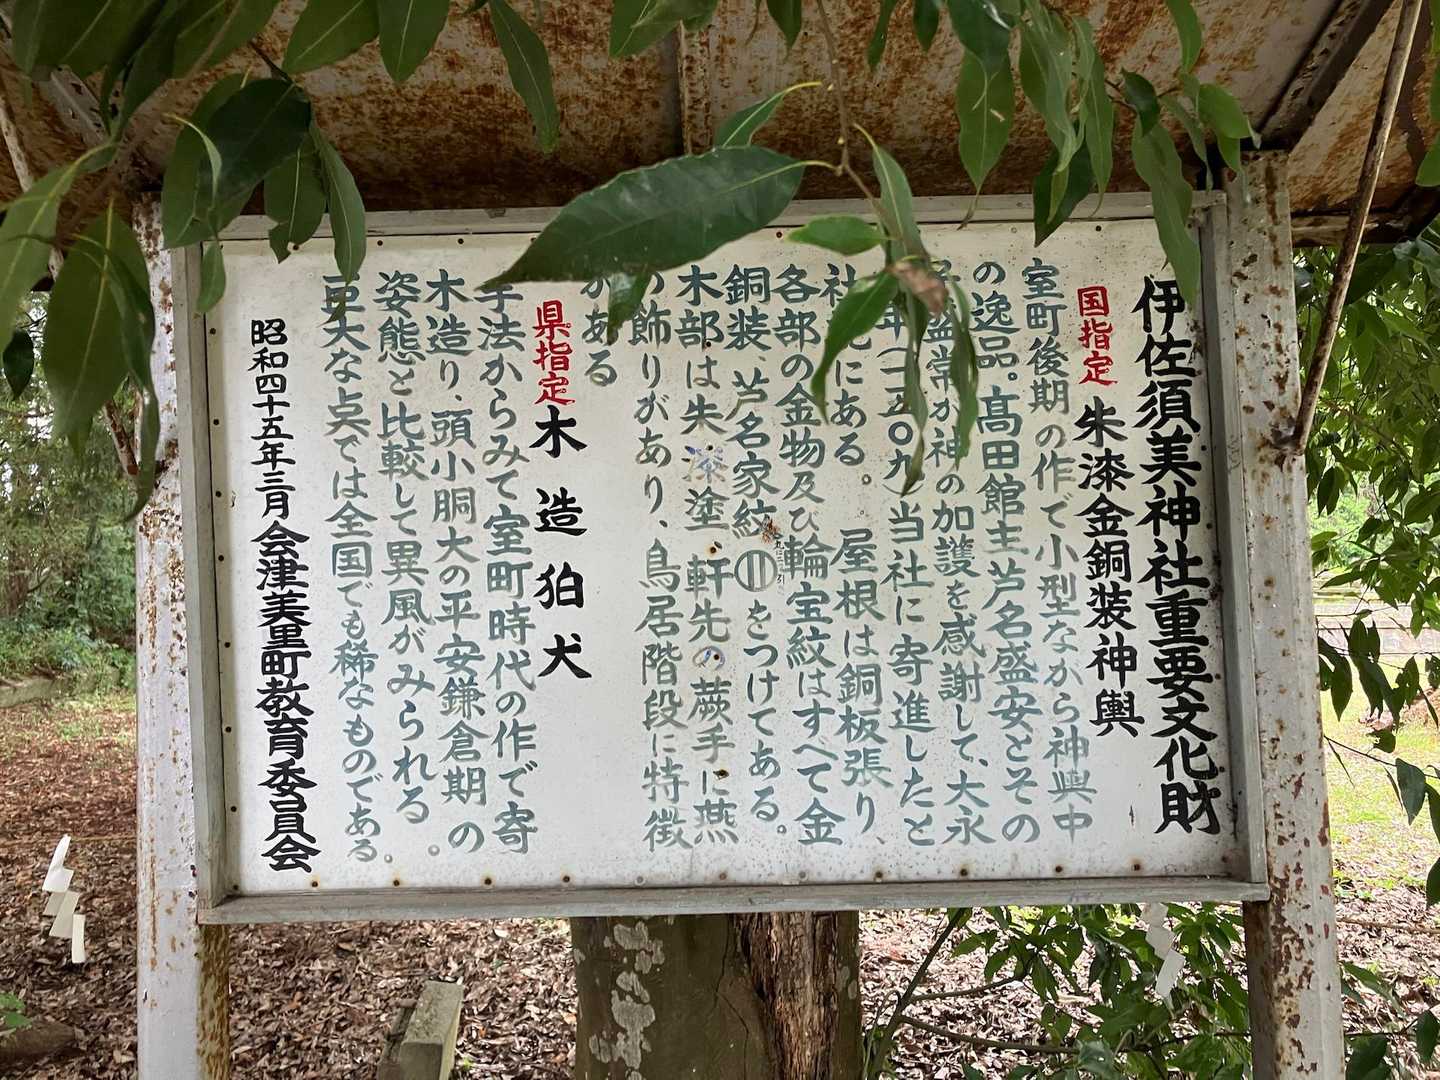 伊佐須美神社重要文化財
国指定 朱漆金銅装神輿
室町後期の作で小型ながら神輿中
の逸品。高田館主芦名盛安とその
子盛常が神の加護を感謝して、大永
年(一五〇九)当社に寄進したと
社 にある。屋根は銅板張り、
各部の金物及び輪宝紋はすべて金
銅装、芦名家紋 丸に三引 をつけてある。
木部は朱漆塗、軒先の蕨手に燕
の飾りがあり、鳥居階段に特徴
がある
県指定 木造狛犬
手法からみて室町時代の作で寄
木造り、頭小胴大の平安鎌倉期の
姿態と比較して異風がみられる。
巨大な点では全国でも稀なものである。
昭和四十五年三月 会津美里町教育委員会